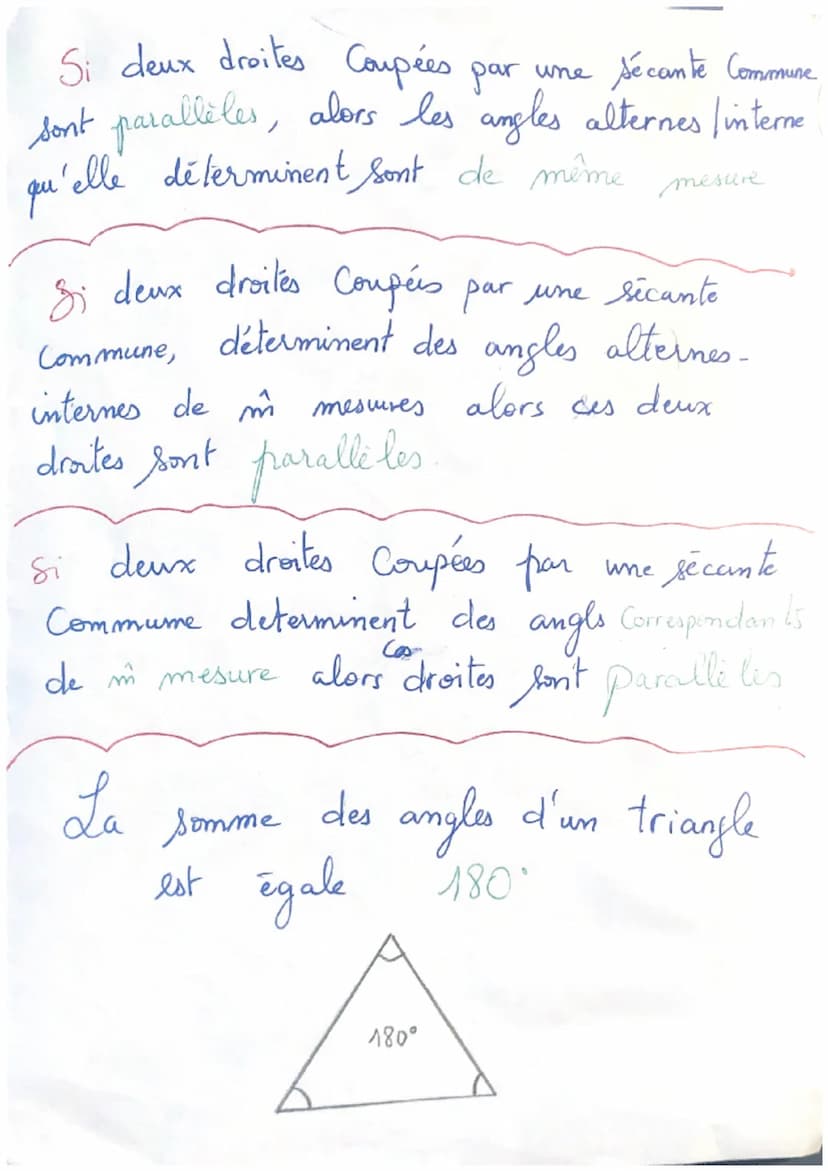 Si deux droites Coupées par une sécante Commune
sont parallèles, alors les angles alternes/interne
qu'elle déterminent sont de même mesure
Si deux droites Coupées par une sécante
Commune, déterminent des angles alternes-
internes de m̂ mesures alors ces deux
droites sont parallèles.
Si deux droites Coupées par une sécante
Commume determinent des angls Correspondants
de m̂ mesure alors ces droites sont parallèles
La somme des angles d'un triangle
est égale 180°
180°